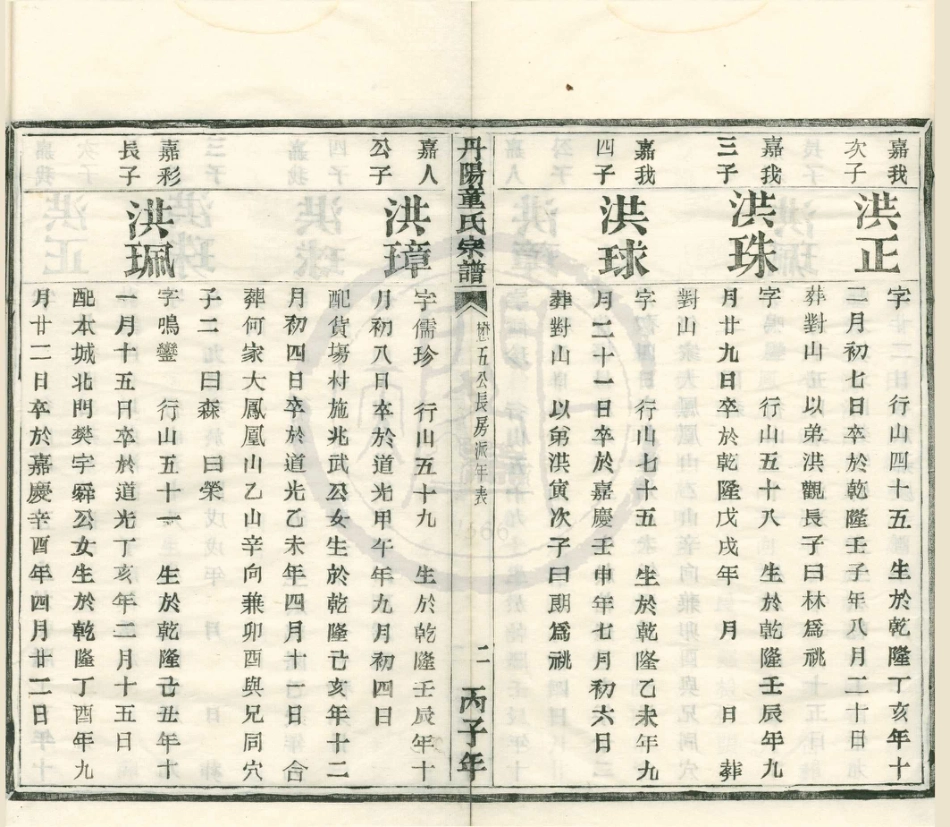 嘉我
次子
洪正
字　行山四十五　生於乾隆丁亥年十
二月初七日卒於乾隆壬子年八月二十日
葬對山以弟洪觀長子曰林為祧
嘉我
三子
洪珠
字　行山五十八　生於乾隆壬辰年九
月廿九日卒於乾隆戊戌年　月　日　葬
對山
嘉我
四子
洪球
字　行山七十五　生於乾隆乙未年九
月二十一日卒於嘉慶壬申年七月初六日
葬對山　以弟洪寅次子曰朗為祧
丹陽童氏宗譜
懋五公長房派年表
二
丙子年
嘉人
公子
洪璋
字儒珍　行山五十九　生於乾隆壬辰年十
月初八日卒於道光甲午年九月初四日
配貨塲村施兆武公女生於乾隆己亥年十二
月初四日卒於道光乙未年四月十二日合
葬何家大鳳凰山乙山辛向兼卯酉與兄同穴
子二曰森　曰榮
嘉彩
長子
洪珮
字鳴鑾　行山五十一　生於乾隆己丑年十
一月十五日卒於道光丁亥年二月十五日
配本城北門樊字舜公女生於乾隆丁酉年九
月廿二日卒於嘉慶辛酉年四月廿二日